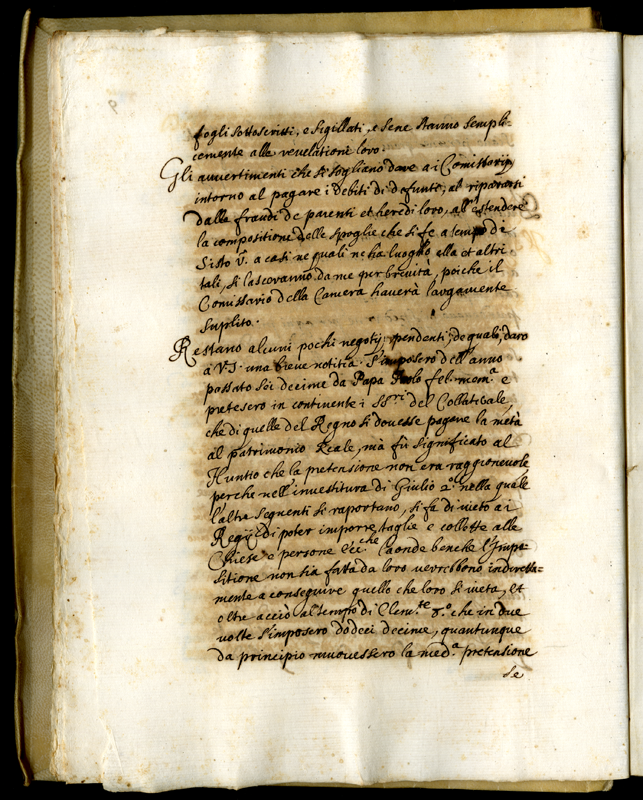 fogli sottoscritti, e sigillati, e sene stanno sempli-
cemente alle revelationi loro.
Gli avvertimenti che si sogliano dare a i Comissarij
intorno al pagare i debiti di defunti, al ripararsi
dalle fraudi de parenti et heredi loro, all' estendere
la compositione delle spoglie che si fe a tempo di
Sisto V. a casi ne quali ne ha luogo alla et altri
tali, si lascovanno da me per brevità, poiche il
Comissario della Camera haverà largamente
suplito.
Restano alcuni pochi negotij pendenti, de quali, daro
à V.S. una breve notitia. S'imposero dell' anno
passato sei decime da Papa Paolo fel. mem.a e
pretesero in continente i SS.ri del Collaterale,
che di quelle del Regno si dovesse pagare la metà
al patrimonio Reale, mà fù significato al
Nuntio che la pretensione non era raggionevole,
perche nell' investitura di Giulio 2.o nella quale
l'altre seguenti si raportano, si fa divieto ai
Regij di poter imporre, taglie e collette alle
Chiese e persone Ecc.che laonde benche l'Impo-
sitione non sia fatta da loro verrebbono indiretta-
mente a conseguire quello che loro si vieta, et
oltre acciò al tempo di Clem.te 8.o che in due
volte s'imposero dodeci decime, quantunque
da principio movessero la med.a pretensione
se